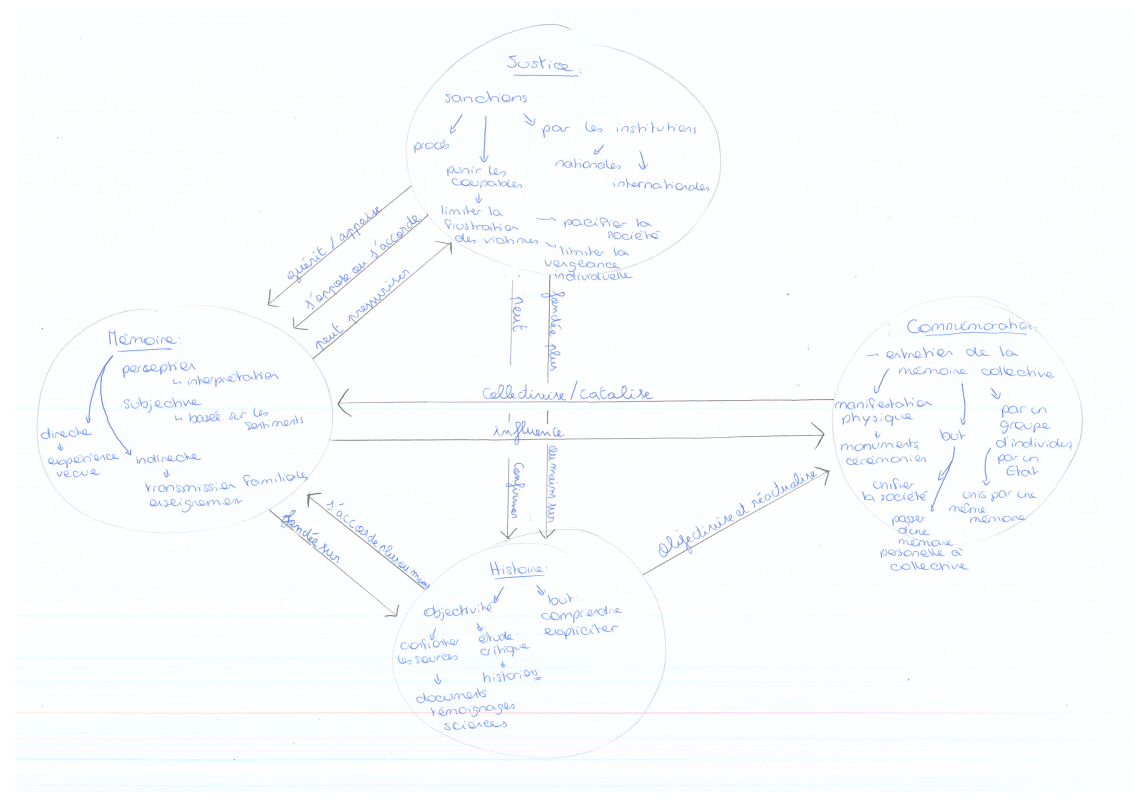 Justice:
sanctions
procès
punir les
coupables
limiter la
frustration
des victimes
par les institutions
nationales
internationales
pacifier la
société
limiter la
vengeance
individuelle
guérit / appaise
s'oppose ou s'accorde
peut pressuriser
peut
confirmer
fondée plus
ou moins sur
Mémoire:
perception
↳ interprétation
subjective
↳ basée sur les
sentiments
directe
expérience
vécue
indirecte
transmission familiale
enseignement
collectivise/catalise
influence
Commémoration:
→ entretien de la
mémoire collective
manifestation
physique
monuments
cérémonies
but
unifier
la société
passer
d'une
mémoire
personelle à
collective
par un
groupe
d'individus
par un
État
unis par une
même
mémoire
fondée sur
s'accorde plus ou moins
objectivise et réactualise
Histoire:
objectivité
confronter
les sources
documents
témoignages
sciences
étude
critique
historiens
but:
comprendre
expliciter